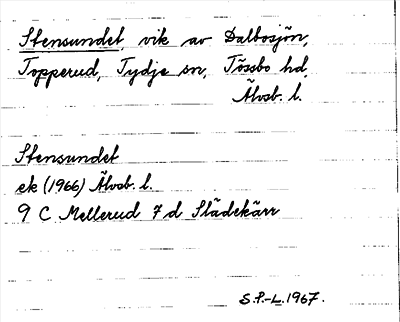 Stensundet, vik av Dalbosjön,
Topperud, Tydje sn, Tössbo hd,
Älvsb. l.
Stensundet
ek (1966) Älvsb. l.
9 C Mellerud 7 d Slädekärr
S.P.-L. 1967.